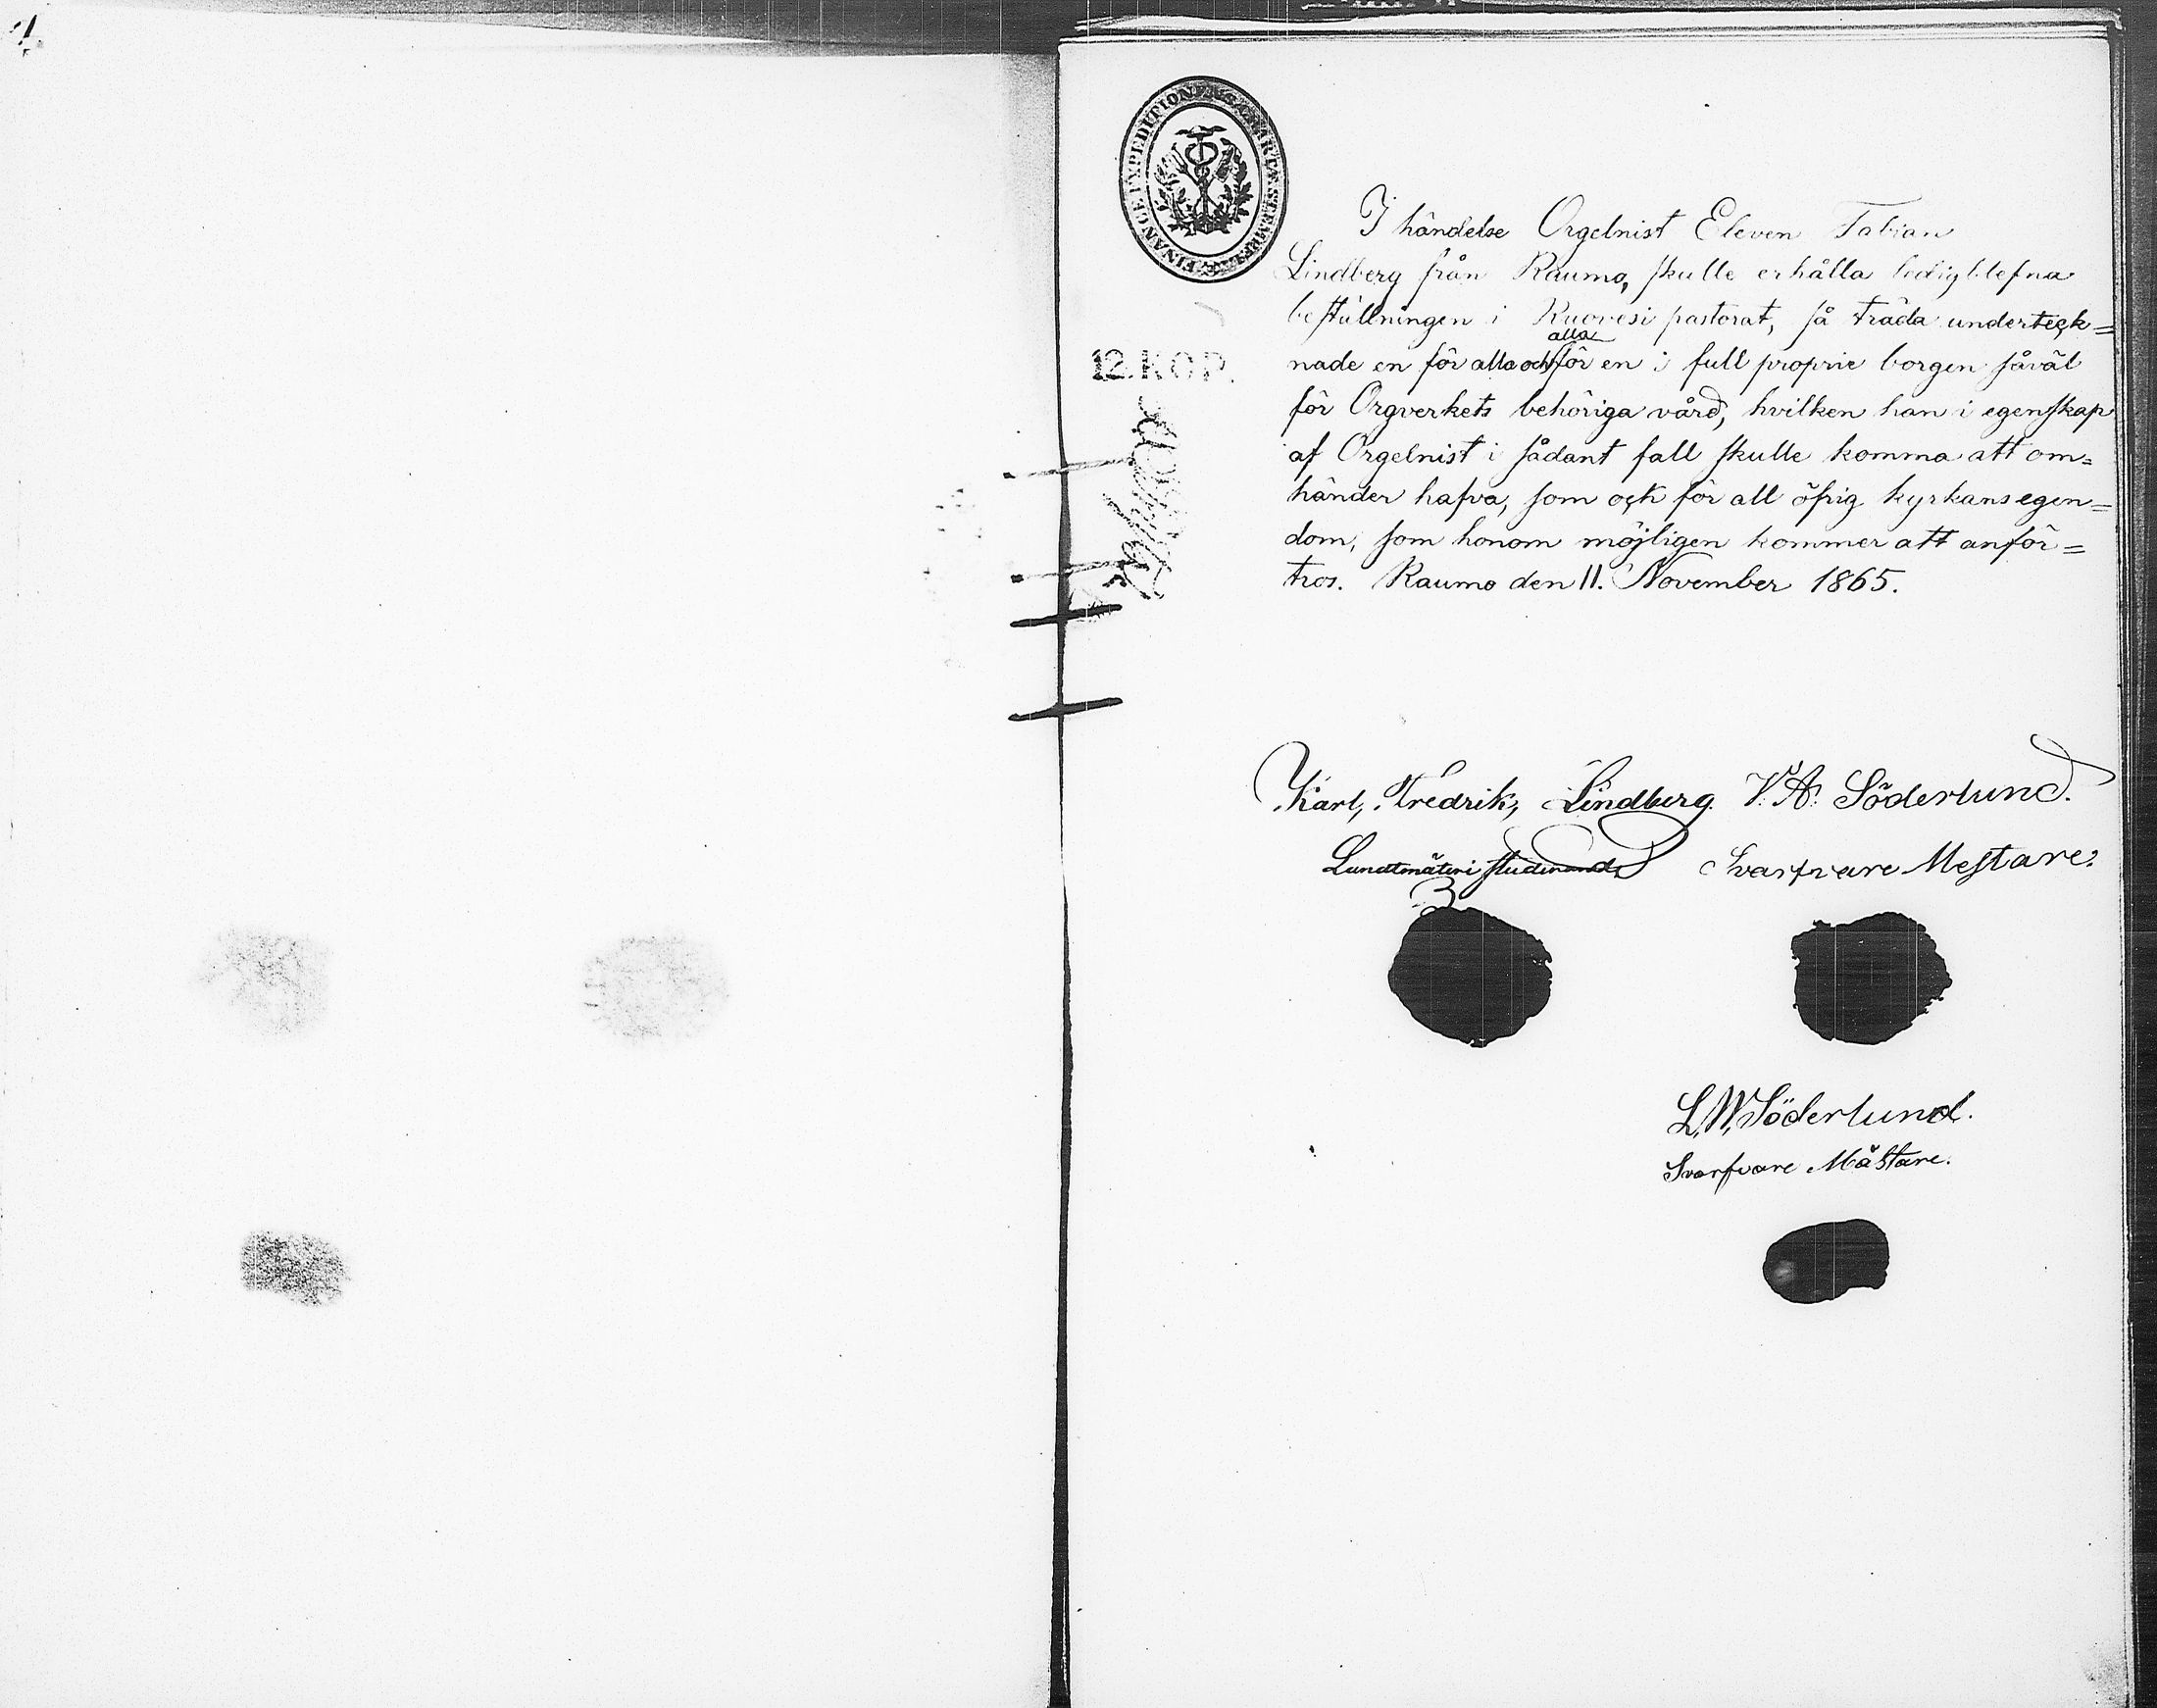 FINANCE EXPEDITIONENS CHARTÆ STEMPEL
12. KOP.
I händelse Orgelnist Eleven Fabian
Lindberg från Raumo, skulle erhålla ledigblefna
beställningen i Ruovesi pastorat, så träda underteck=
nade en för alla och alla för en i full proprie borgen såväl
för Orgverkets behöriga vård, hvilken han i egenskap
af Orgelnist i sådant fall skulle komma att om=
händer hafva, som ock för all öfrig kyrkans egen=
dom, som honom möjligen kommer att anför=
tros. Raumo den 11. November 1865.
Karl, Fredrik, Lindberg. V. A. Söderlund.
Landtmäteri studerande Svarfvare Mestare.
L. W. Söderlund.
Svarfvare Mästare.